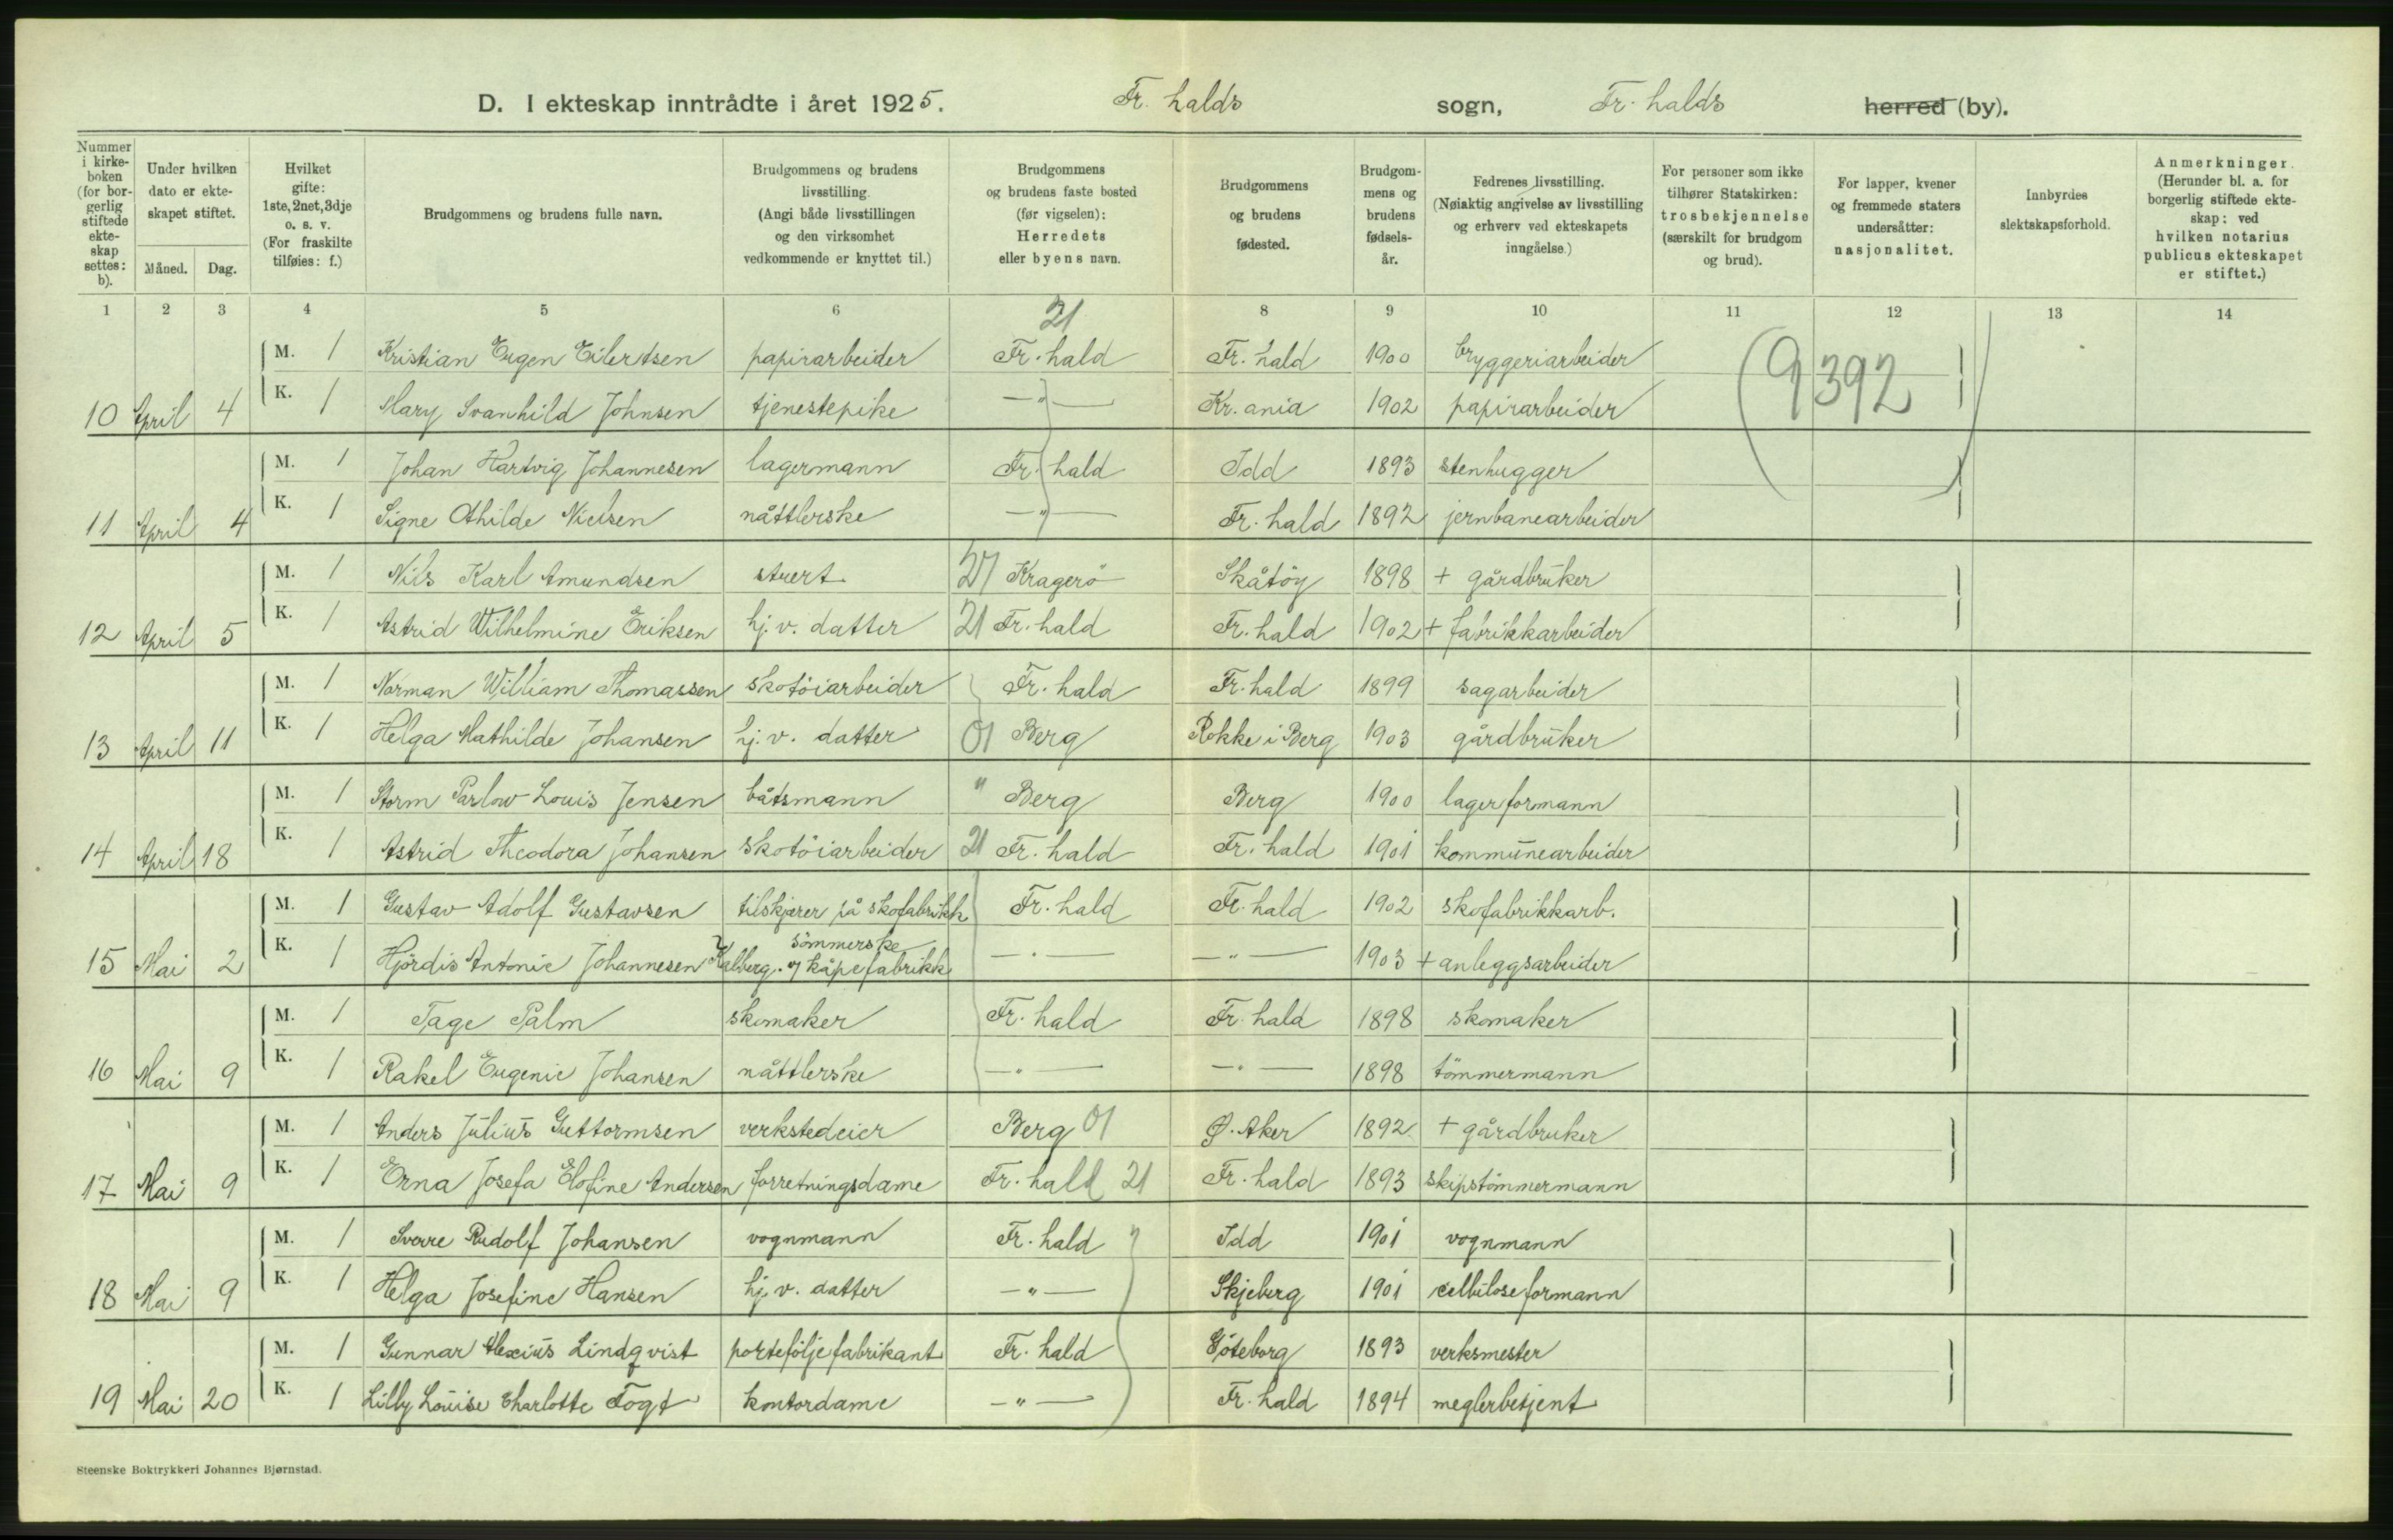 D. I ekteskap inntrådte i året 1925. Fr. halds sogn, Fr. halds herred (by).
Nummer i kirkeboken (for borgerlig stiftede ekteskap settes: b).
Under hvilken dato er ekteskapet stiftet.
Måned. Dag.
Hvilket gifte: 1ste, 2net, 3dje o. s. v. (For fraskilte tilføies: f.)
Brudgommens og brudens fulle navn.
Brudgommens og brudens livsstilling. (Angi både livsstillingen og den virksomhet vedkommende er knyttet til.)
Brudgommens og brudens faste bosted (før vigselen): Herredets eller byens navn.
Brudgommens og brudens fødested.
Brudgommens og brudens fødselsår.
Fedrenes livsstilling. (Nøiaktig angivelse av livsstilling og erhverv ved ekteskapets inngåelse.)
For personer som ikke tilhører Statskirken: trosbekjennelse (særskilt for brudgom og brud).
For lapper, kvener og fremmede staters undersåtter: nasjonalitet.
Innbyrdes slektskapsforhold.
Anmerkninger. (Herunder bl. a. for borgerlig stiftede ekteskap: ved hvilken notarius publicus ekteskapet er stiftet.)
1 2 3 4 5 6 8 9 10 11 12 13 14
21
M. 1 Kristian Eugen Eilertsen papirarbeider Fr. hald Fr. hald 1900 bryggeriarbeider (9392)
10 April 4 K. 1 Mary Svanhild Johnsen tjenestepike —"— Kr.ania 1902 papirarbeider
M. 1 Johan Hartvig Johannesen lagermann Fr. hald Idd 1893 stenhugger
11 April 4 K. 1 Signe Othilde Nielsen nåttlerske —"— Fr. hald 1892 jernbanearbeider
M. 1 Nils Karl Amundsen stuert 27 Kragerö Skåtöy 1898 + gårdbruker
12 April 5 K. 1 Astrid Wilhelmine Eriksen hj. v. datter 21 Fr. hald Fr. hald 1902 + fabrikkarbeider
M. 1 Norman William Thomassen skotöiarbeider Fr. hald Fr. hald 1899 sagarbeider
13 April 11 K. 1 Helga Mathilde Johansen hj. v. datter 01 Berg Rokke i Berg 1903 gårdbruker
M. 1 Storm Parlow Louis Jensen båtsmann " Berg Berg 1900 lagerformann
14 April 18 K. 1 Astrid Theodora Johansen skotöiarbeider 21 Fr. hald Fr. hald 1901 kommunearbeider
M. 1 Gustav Adolf Gustavsen tilskjærer på skofabrikk Fr. hald Fr. hald 1902 skofabrikkarb.
sömmerske
15 Mai 2 K. 1 Hjördis Antonie Johannesen Kalberg. kåpefabrikk —"— —"— 1903 + anleggsarbeider
M. 1 Tage Palm skomaker Fr. hald Fr. hald 1898 skomaker
16 Mai 9 K. 1 Rakel Eugenie Johansen nåttlerske —"— —"— 1898 tömmermann
M. 1 Anders Julius Guttormsen verkstedeier Berg 01 Ø. Aker 1892 + gårdbruker
17 Mai 9 K. 1 Erna Josefa Elofine Andersen forretningsdame Fr. hald 21 Fr. hald 1893 skipstömmermann
M. 1 Sverre Rudolf Johansen vognmann Fr. hald Idd 1901 vognmann
18 Mai 9 K. 1 Helga Josefine Hansen hj. v. datter —"— Skjeberg 1901 celluloseformann
M. 1 Gunnar Alexius Lindqvist porteföljefabrikant Fr. hald Göteborg 1893 verksmester
19 Mai 20 K. 1 Lilly Louise Charlotte Fogt kontordame —"— Fr. hald 1894 meglerbetjent
Steenske Boktrykkeri Johannes Bjørnstad.